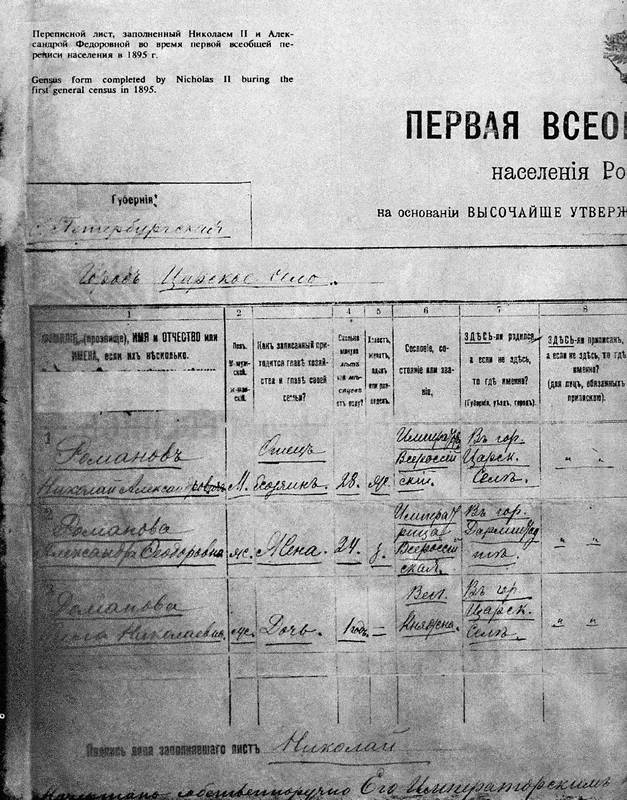 Переписной лист, заполненный Николаем II и Алек-
сандрой Федоровной во время первой всеобщей пе-
реписи населения в 1895 г.
Census form completed by Nicholas II buring the
first general census in 1895.
ПЕРВАЯ ВСЕОБ
населенія Ро
на основаніи ВЫСОЧАЙШЕ УТВЕРЖ
Губернія:
С. Петербургскій
Городъ Царское Село.
1 2 3 4 5 6 7 8
ФАМИЛІЯ, (прозвище), ИМЯ и ОТЧЕСТВО или
ИМЕНА, если ихъ нѣсколько.
Полъ.
М-мужской.
Ж-женскій.
Какъ записанный при-
ходится главѣ хозяй-
ства и главѣ своей
семьи?
Сколько
минуло
лѣтъ
или мѣ-
сяцевъ
отъ роду?
Холостъ,
женатъ,
вдовъ
или раз-
веденъ.
Сословіе, со-
стояніе или зва-
ніе.
ЗДѢСЬ-ли родился,
а если не здѣсь,
то гдѣ именно?
(Губернія, уѣздъ, городъ).
ЗДѢСЬ-ли приписанъ,
а если не здѣсь, то гдѣ
именно?
(для лицъ, обязанныхъ
припискою).
1
Романовъ
Николай Александровичъ
М.
Отецъ
Хозяинъ.
28.
ж.
Императоръ
Всероссій
скій.
Въ гор.
Царск.
Селѣ.
" "
2
Романова
Александра Ѳеодоровна
ж.
Жена.
24.
з.
Импера
рица
Всероссій
ская.
Въ гор.
Дармшад
тѣ.
" "
3
Романова
Николаевна
ж.
Дочь.
1 годъ.
–
Вел.
Княжна.
Въ гор
Царск.
Селѣ.
" "
Подпись лица заполнявшаго листъ Николай
Начертано собственноручно Его Императорскимъ